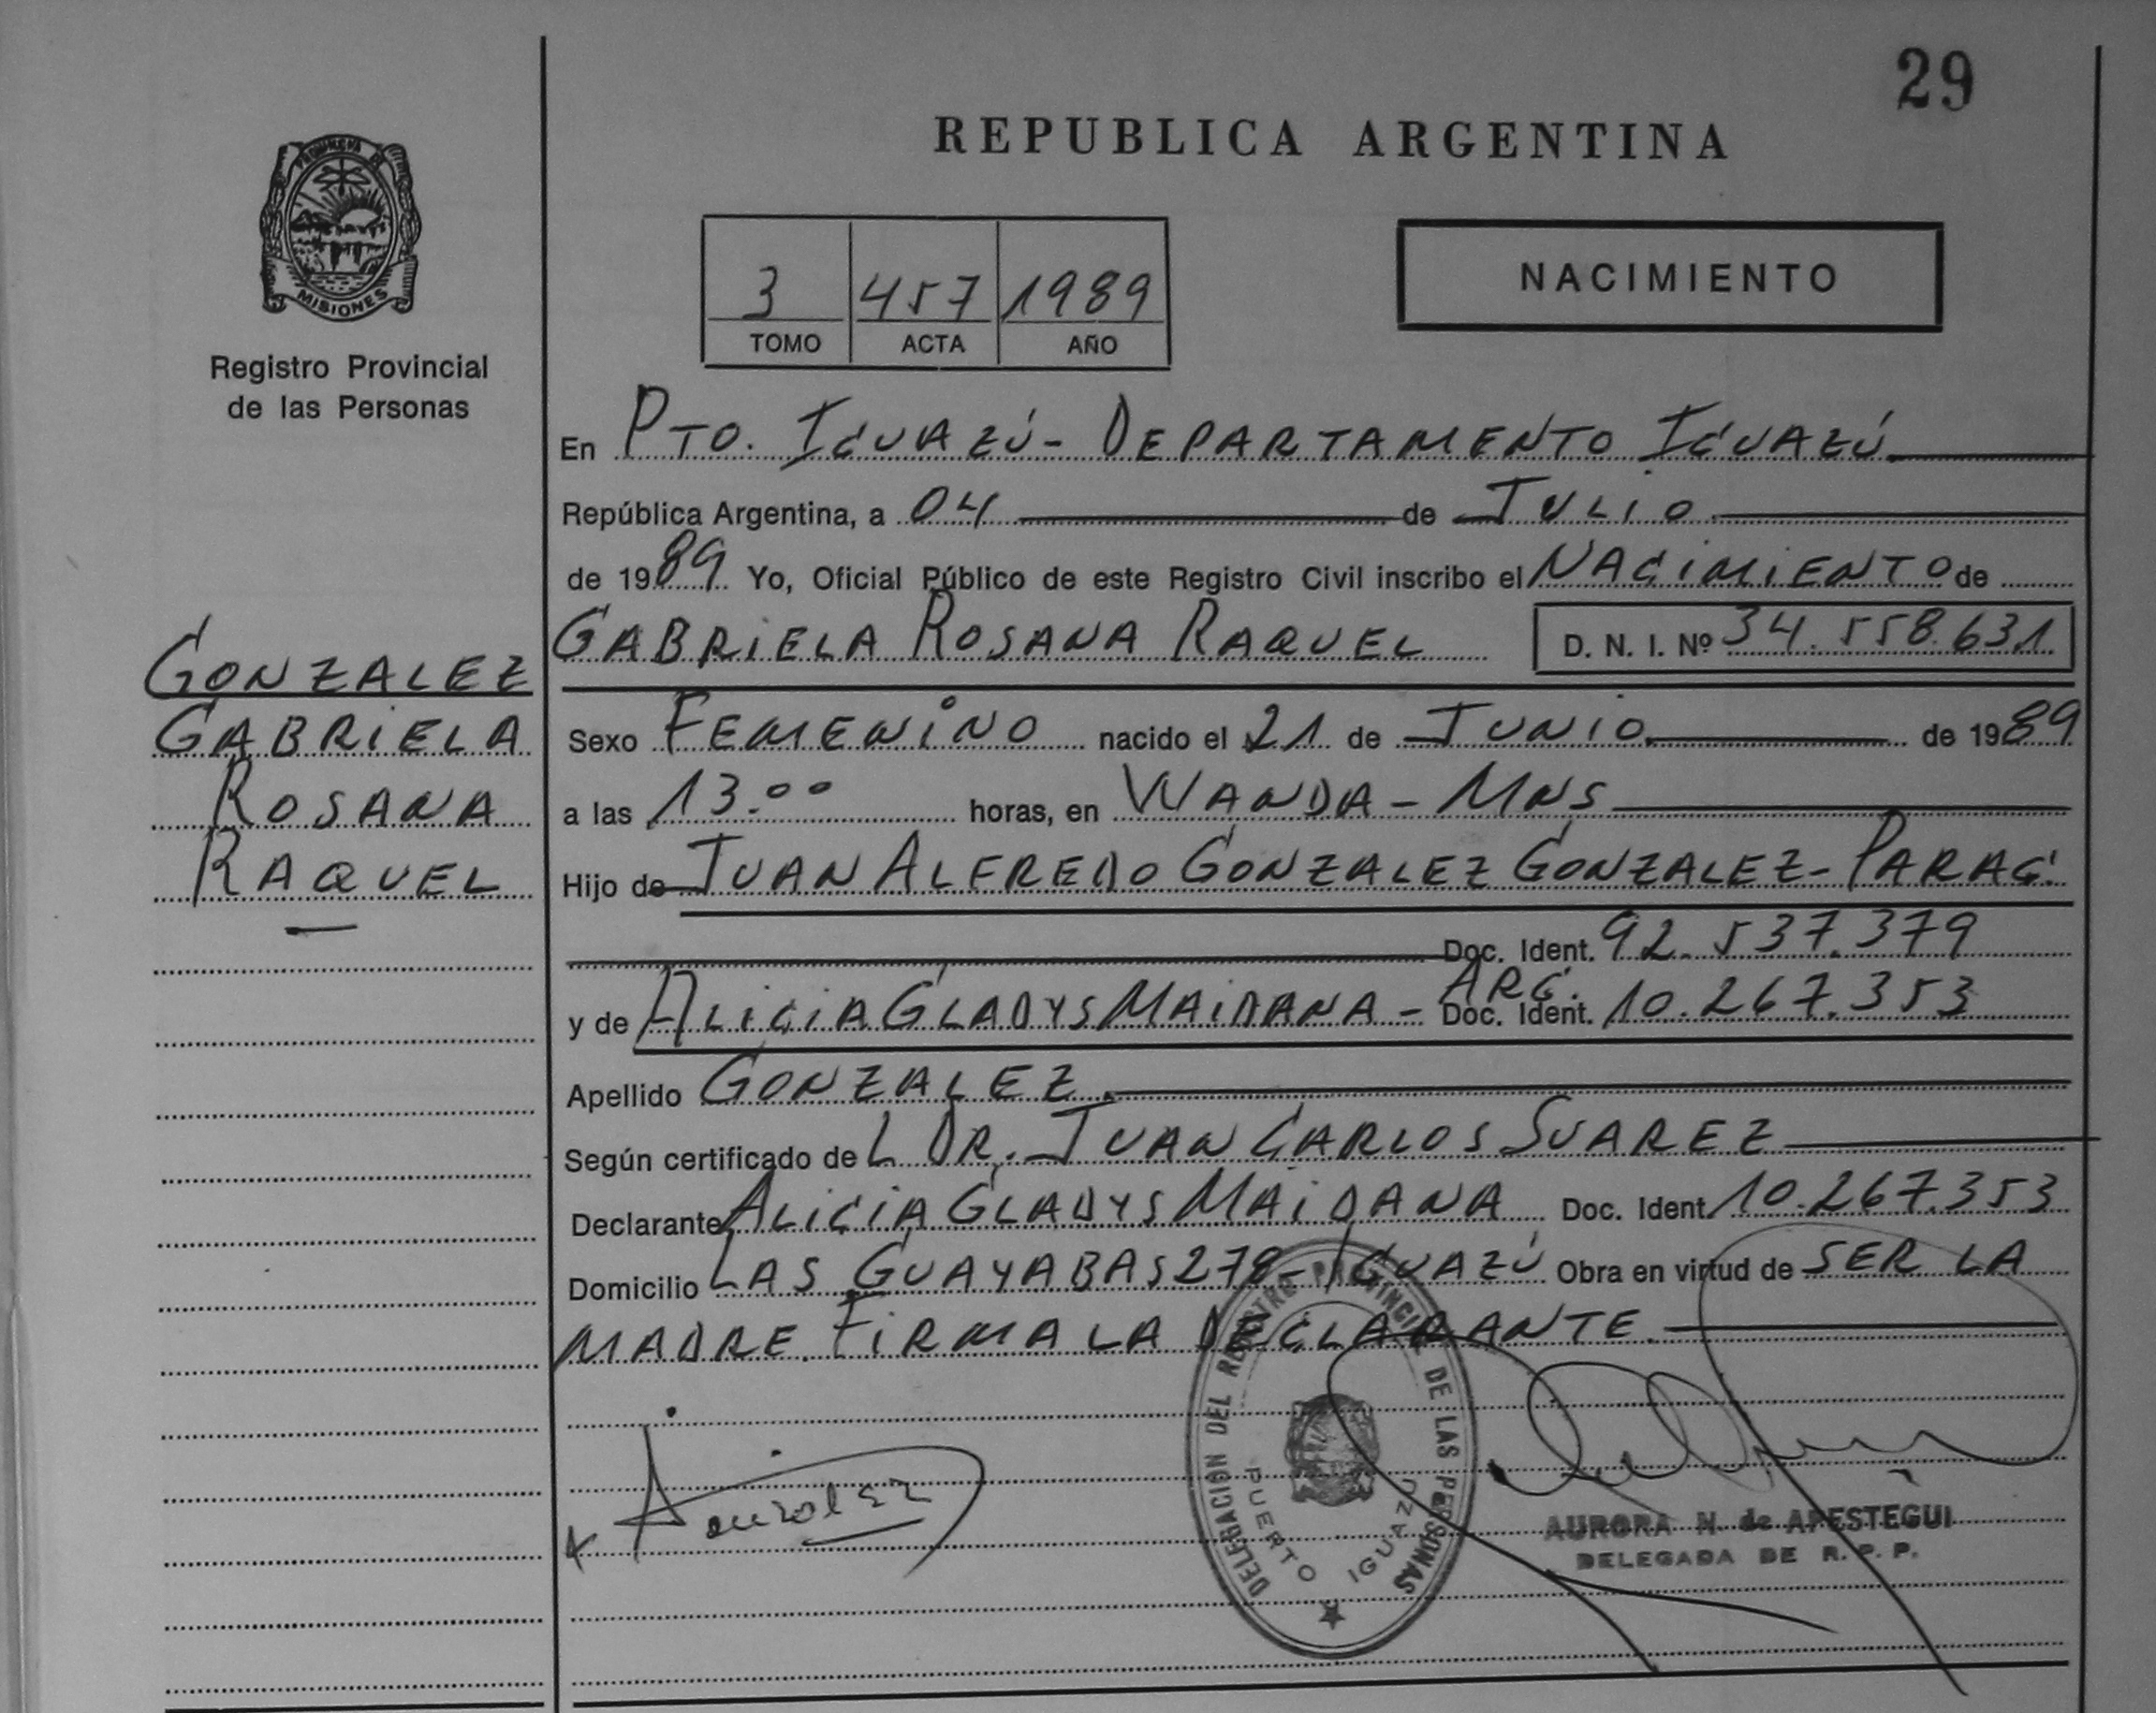 29
REPUBLICA ARGENTINA
PROVINCIA DE
MISIONES
Registro Provincial
de las Personas
3 457 1989
TOMO ACTA AÑO
NACIMIENTO
En PTO. IGUAZÚ - DEPARTAMENTO IGUAZÚ
República Argentina, a 04 de JULIO
de 1989 Yo, Oficial Público de este Registro Civil inscribo el NACIMIENTO de
GONZALEZ
GABRIELA
ROSANA
RAQUEL
GABRIELA ROSANA RAQUEL D. N. I. Nº 34.558.631
Sexo FEMENINO nacido el 21 de JUNIO de 1989
a las 13.00 horas, en WANDA - MNS
Hijo de JUAN ALFREDO GONZALEZ GONZALEZ - PARAG.
Doc. Ident. 92.537.379
y de ALICIA GLADYS MAIDANA - ARG. Doc. Ident. 10.267.353
Apellido GONZALEZ
Según certificado de L DR. JUAN CARLOS SUAREZ
Declarante ALICIA GLADYS MAIDANA Doc. Ident. 10.267.353
Domicilio LAS GUAYABAS 278 - IGUAZÚ Obra en virtud de SER LA
MADRE. FIRMA LA DECLARANTE.
DELEGACION DEL REGISTRO PROVINCIAL DE LAS PERSONAS
PUERTO IGUAZU
AURORA N. de APESTEGUI
DELEGADA DE R. P. P.